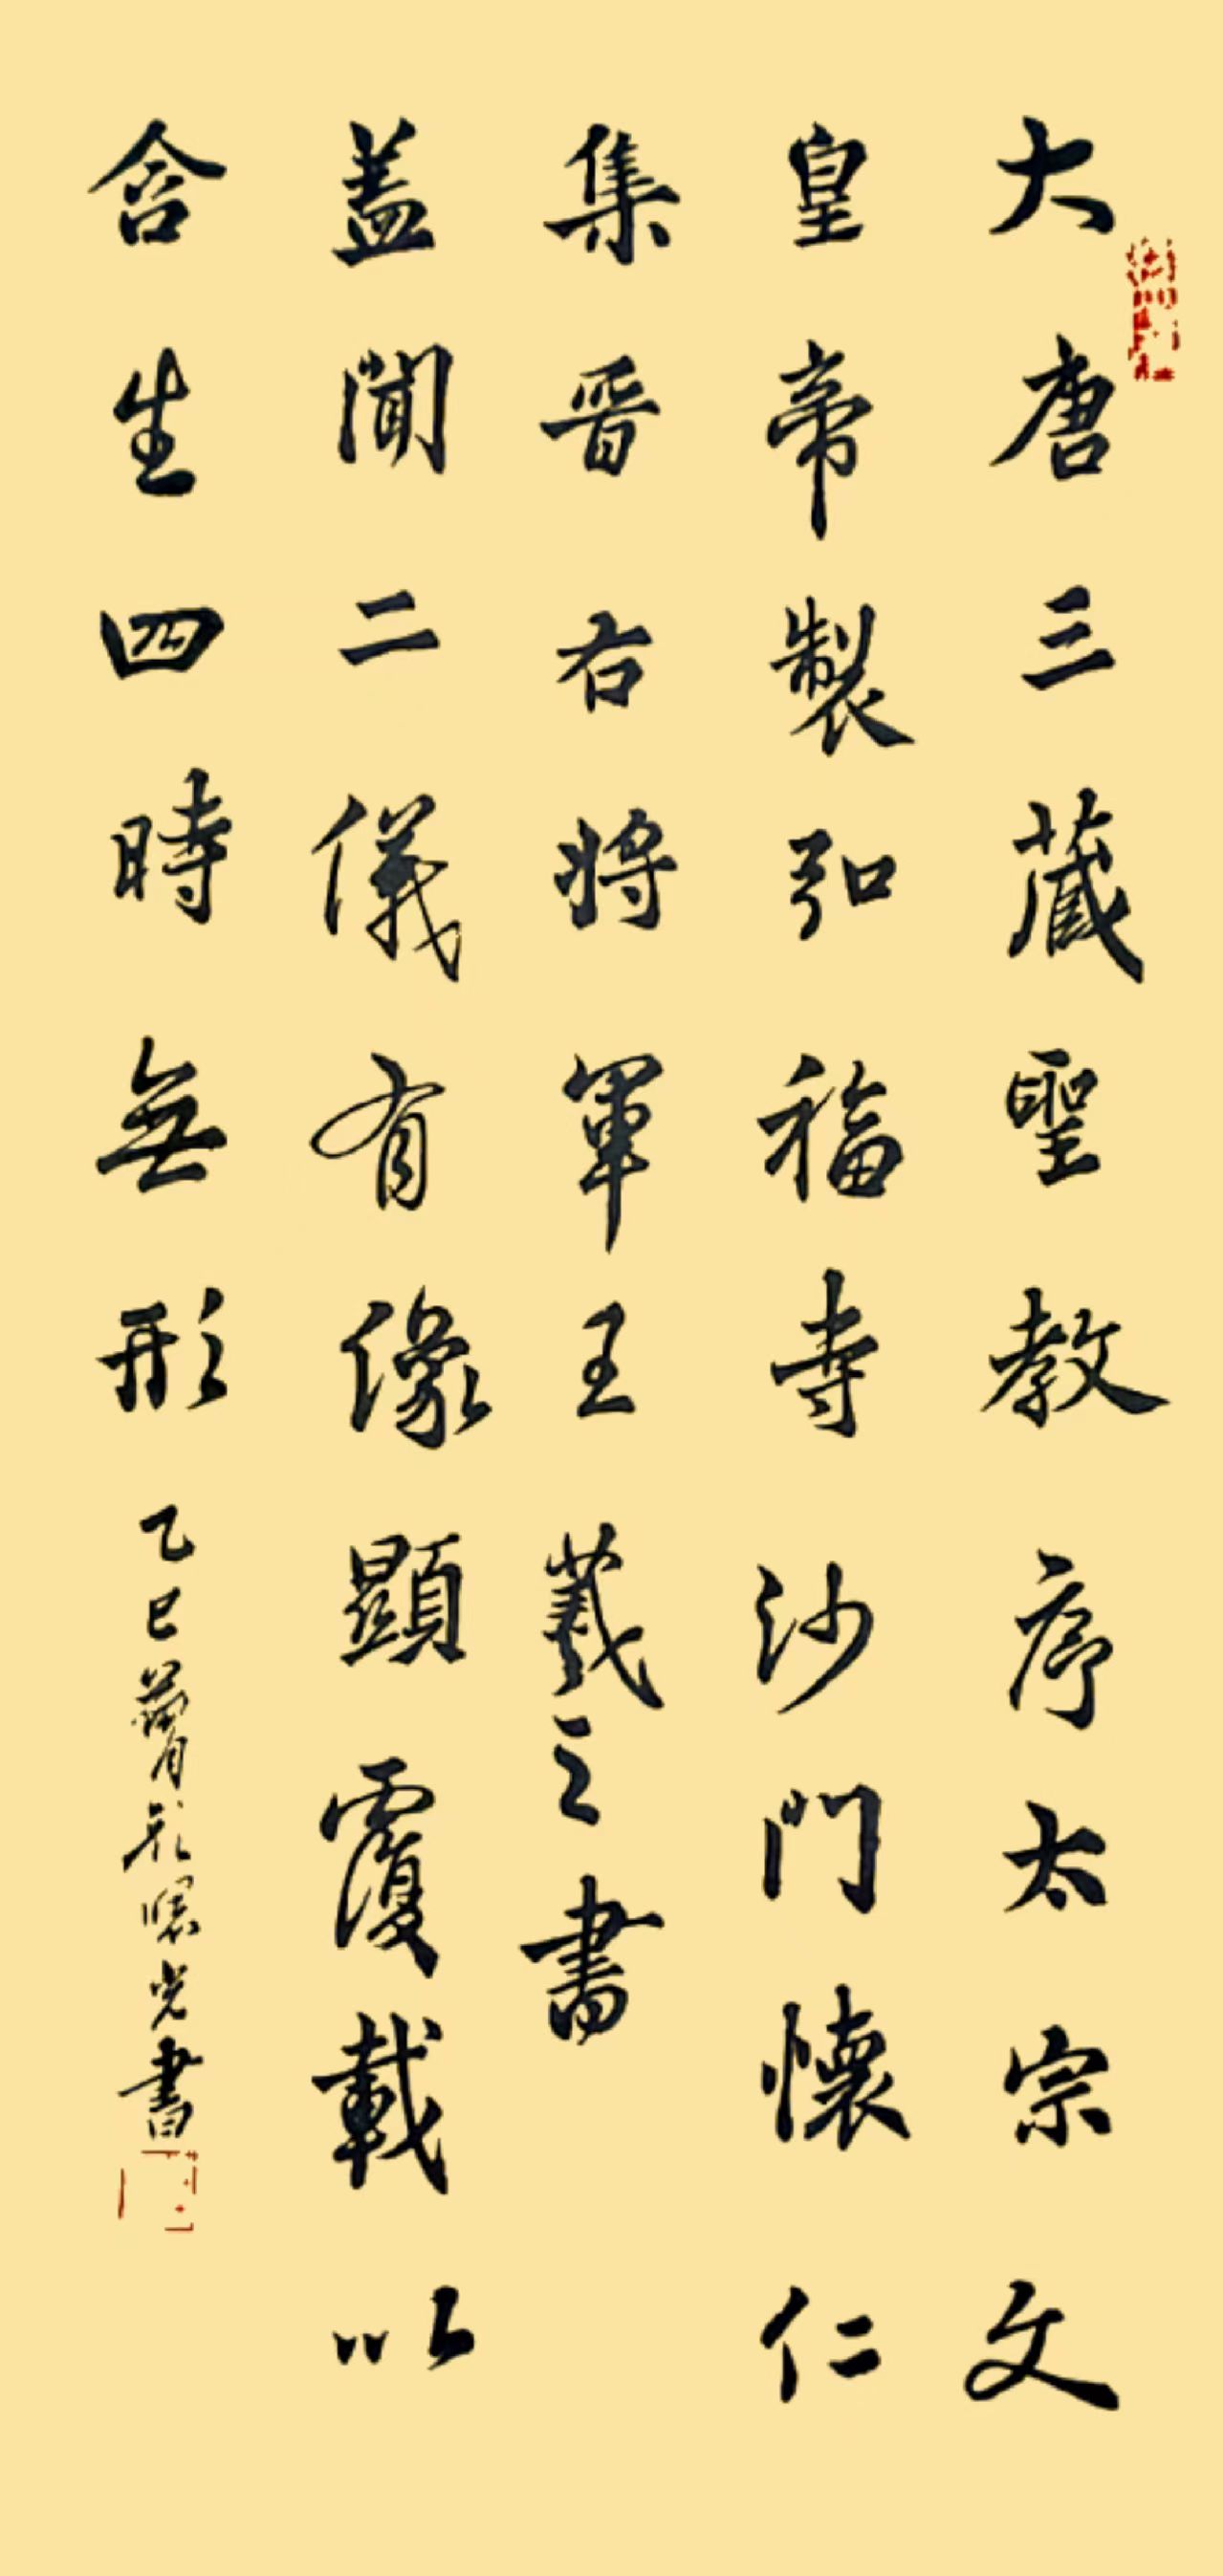 大唐三藏聖教序太宗文
皇帝製弘福寺沙門懷仁
集晉右將軍王羲之書
蓋聞二儀有像顯覆載以
含生四時無形
乙巳 光書